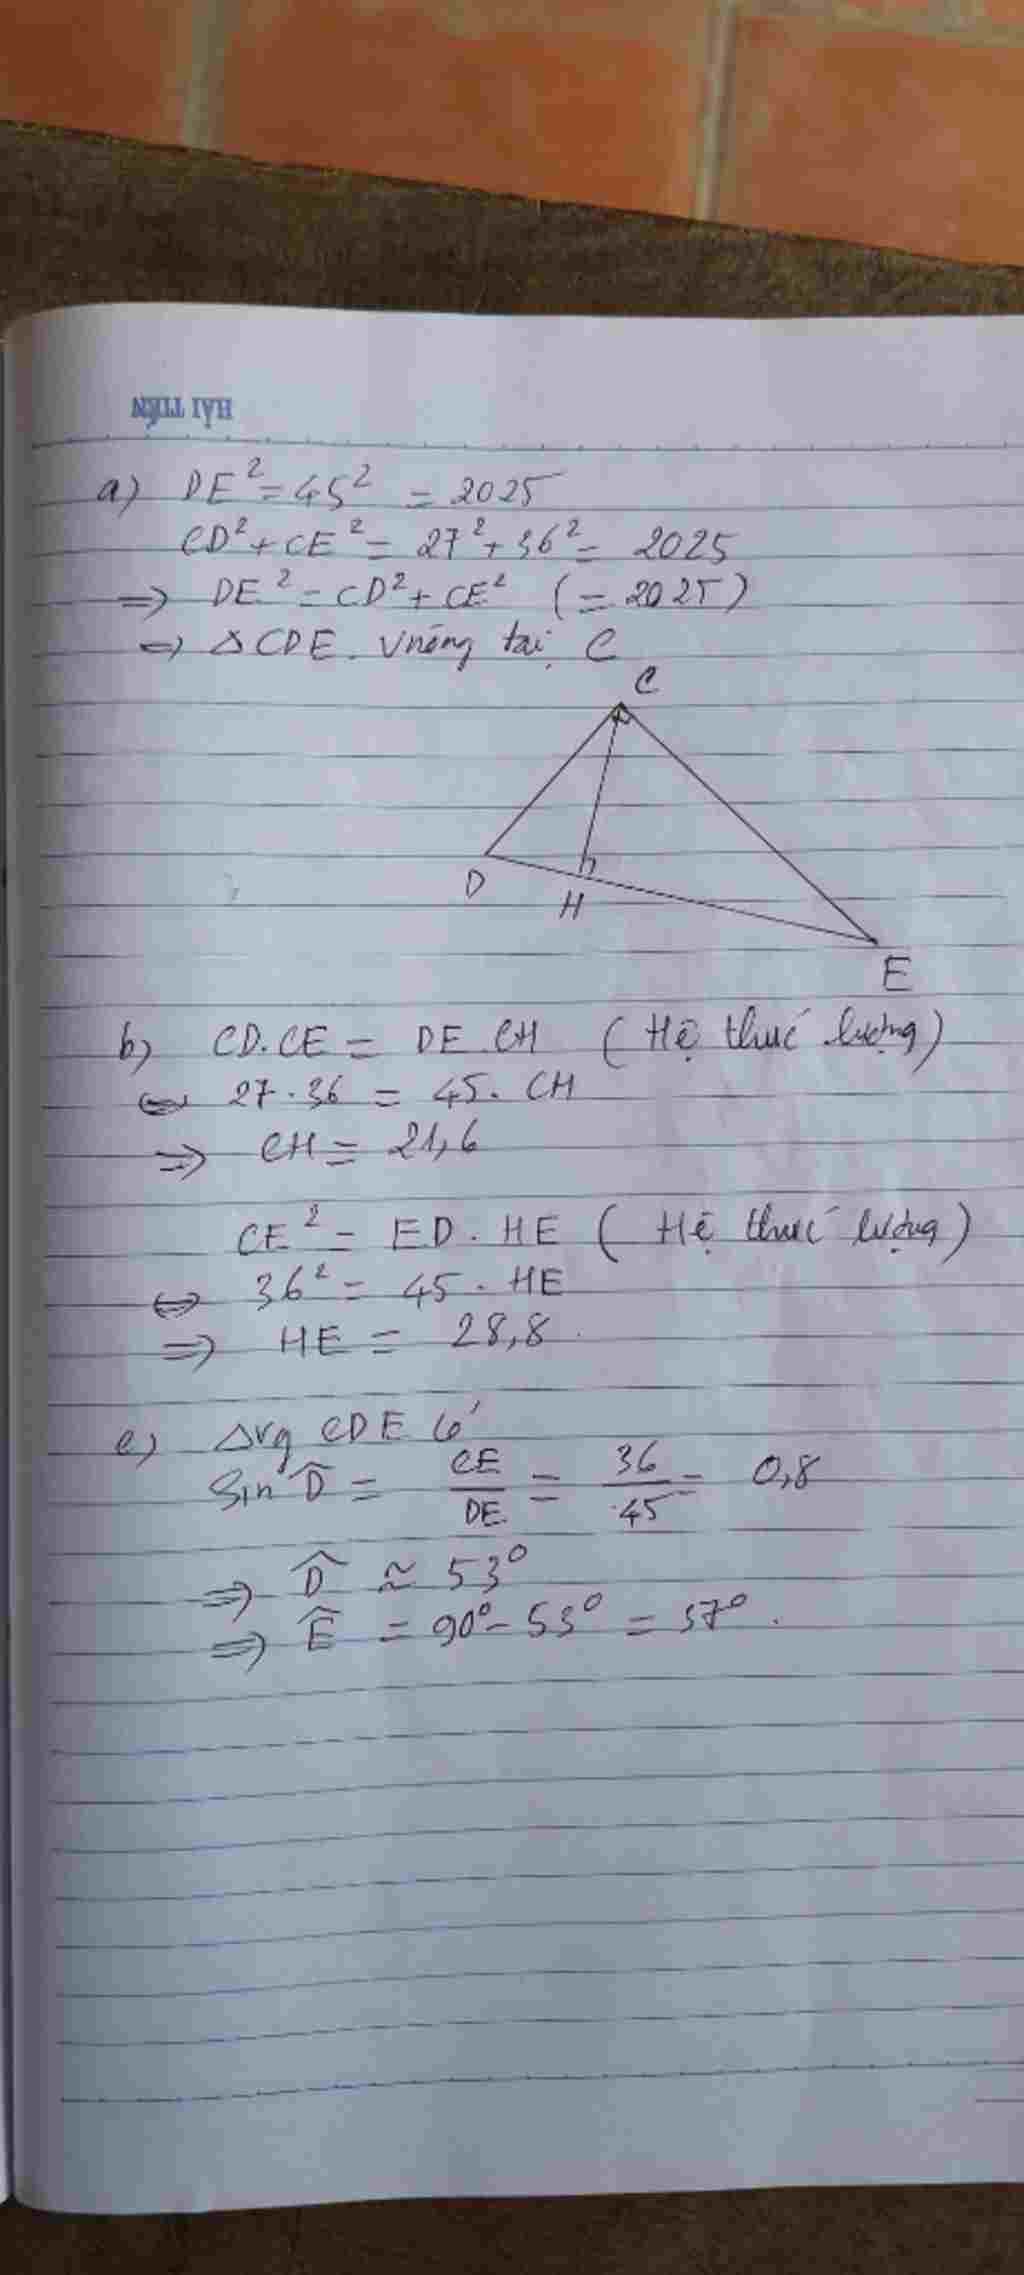 HẢI TIẾN
a) DE² = 45² = 2025
CD² + CE² = 27² + 36² = 2025
=> DE² = CD² + CE² (= 2025)
=> ΔCDE. vuông tại C
C
D
H
E
b) CD.CE = DE.CH (Hệ thức lượng)
<=> 27.36 = 45.CH
=> CH = 21,6
CE² = ED.HE (Hệ thức lượng)
<=> 36² = 45.HE
=> HE = 28,8.
c) Δvg CDE có
Sin D̂ = CE/DE = 36/45 = 0,8
=> D̂ ≈ 53°
=> Ê = 90° - 53° = 37°.